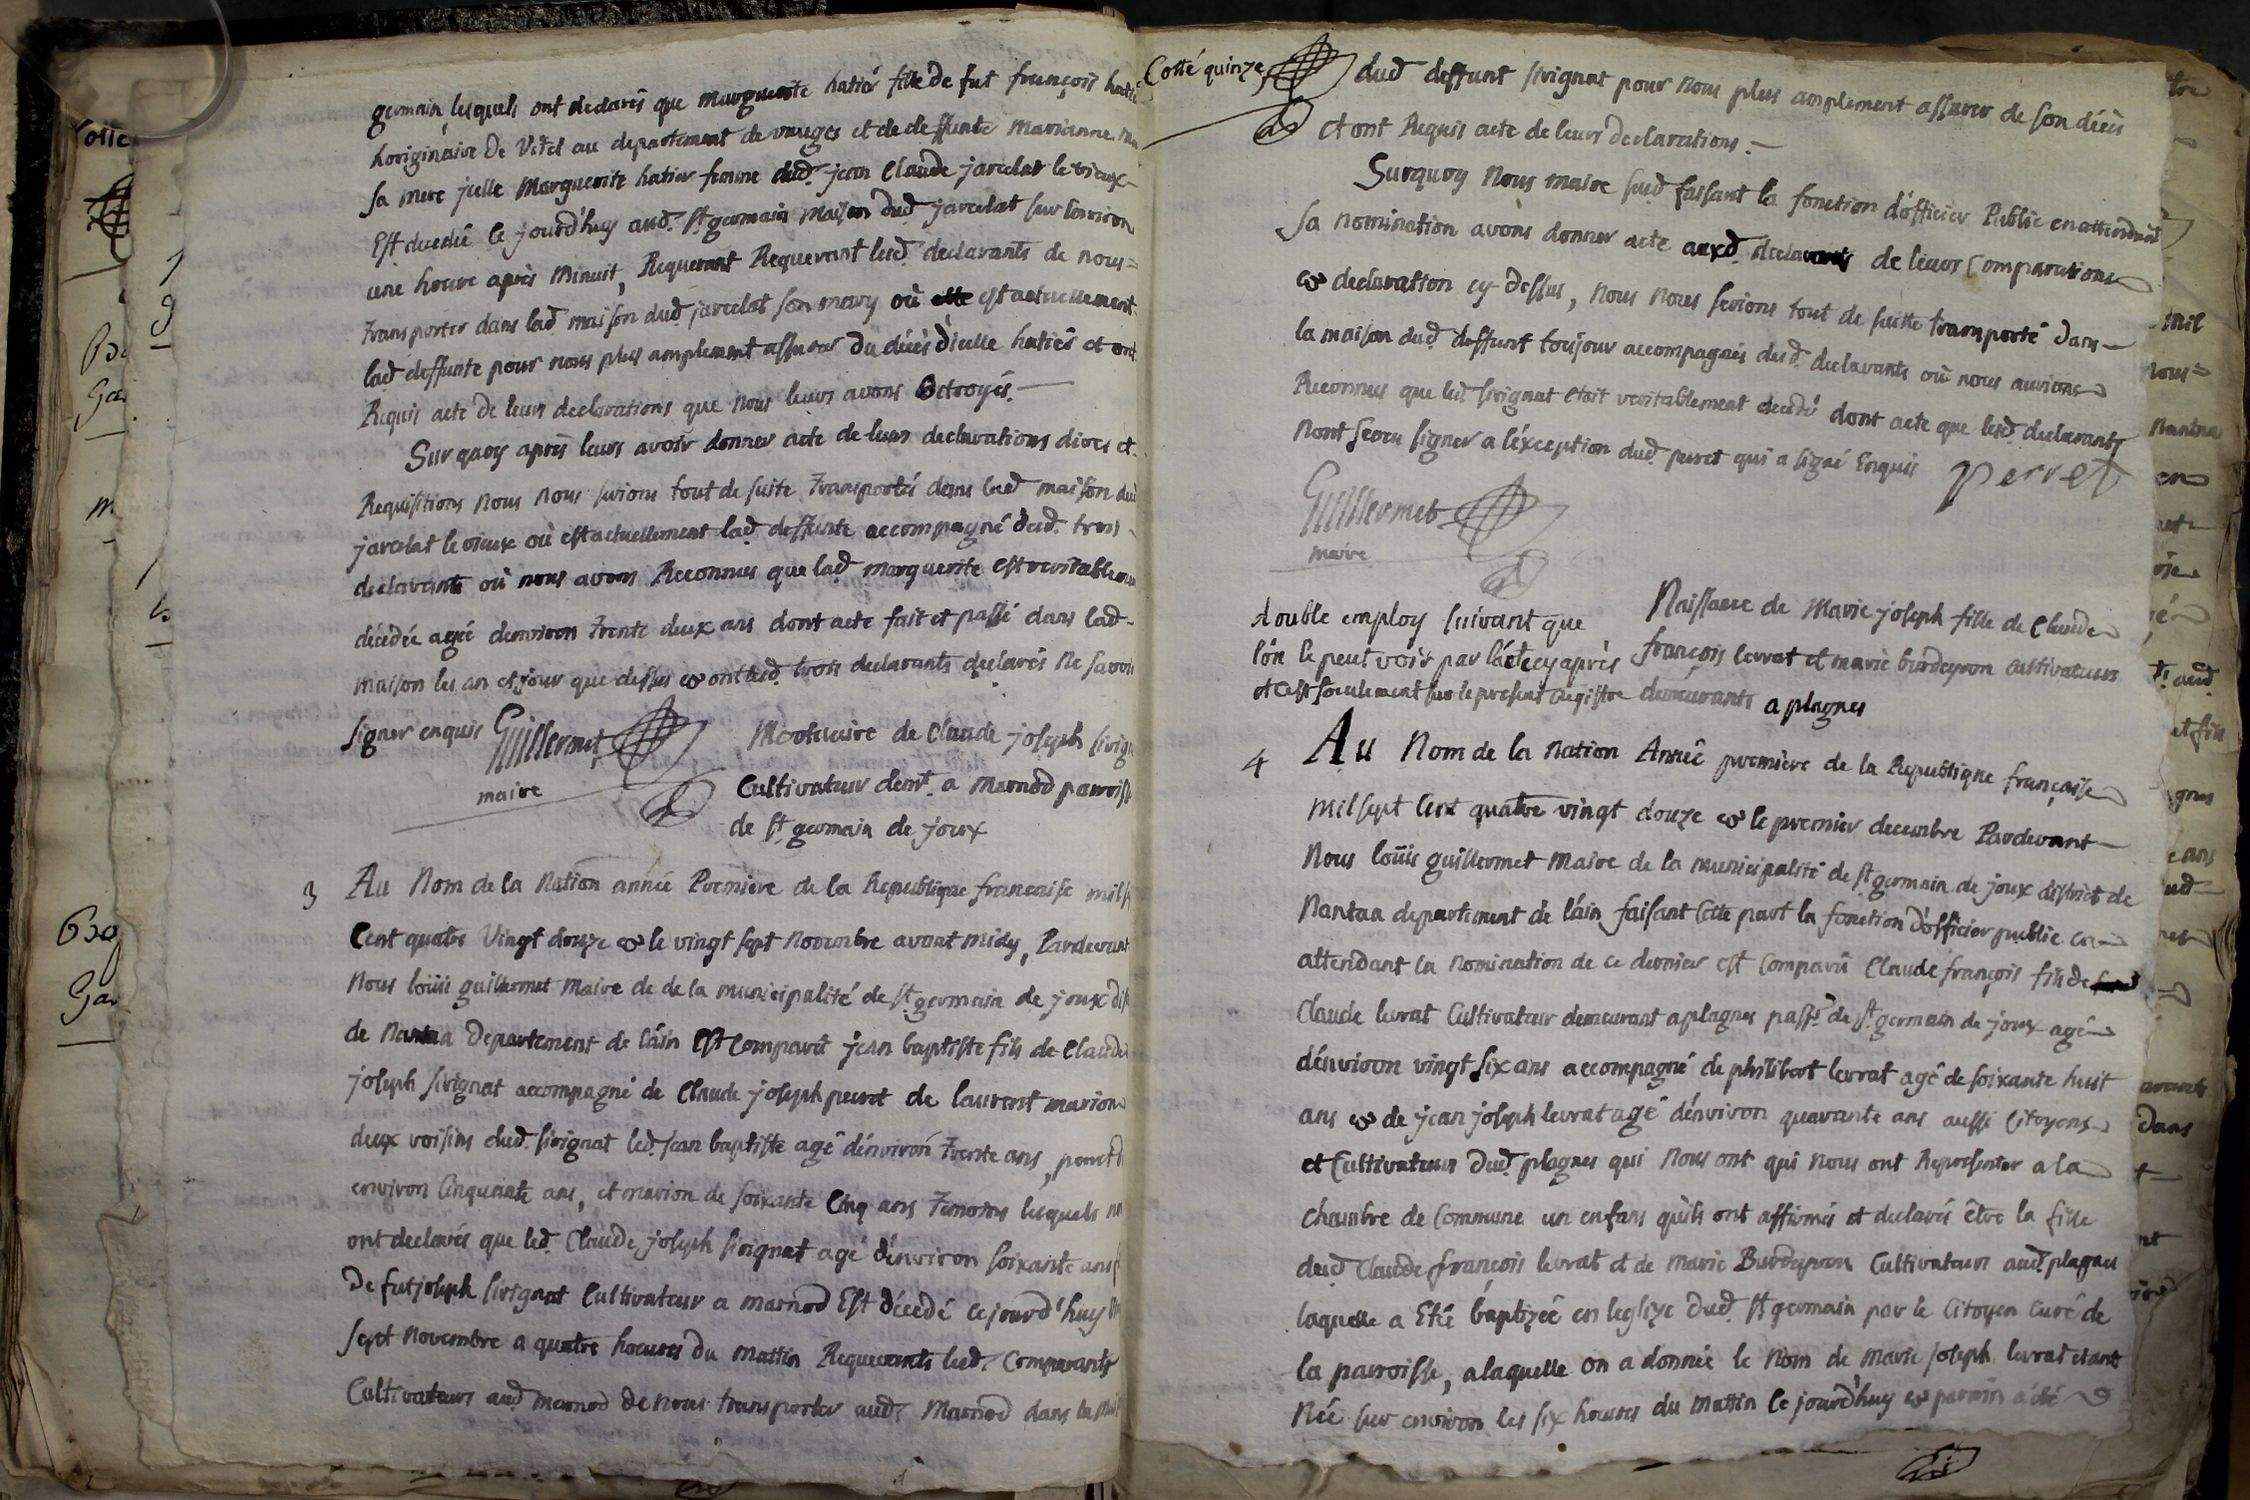 germain, lesquels ont declarés que marguerite hatier fille de fut françois
horiginaire de Vitel au departement de vauges et de deffunte marianne
sa mere jcelle Marguerite hatier femme dud. jean Claude jarcelat le vieux
Est decedée le jourd'huy aud. St germain Maison dud jarcelat sur lenviron
une heure après Minuit, Requerant Requerant lesd. declarants de nous=
transporter dans lad maison dud jarcelat son mary où elle est actuellement
lad deffunte pour nous plus amplement assurer du décès d'icelle hatier et ont
Requis acte de leurs declarations que nous leurs avons Octroyés.—
Surquoy après leurs avoir donner acte de leurs declarations dires et
Requisitions nous nous serions tout de suite transportés dans lad maison
jarcelat le vieux où est actuellement lad deffunte accompagné dud. trois
declarants où nous avons Reconnus que lad marguerite est
décédée agée denviron trente deux ans dont acte fait et passé dans lad-
maison les an et jour que dessus et ont lesd. trois declarants declarés ne
signer enquis Guillermet
maire
Mortuaire de Claude joseph
Cultivateur demt. a Marnod
de St germain de joux
3 Au Nom de la Nation année Premiere de la Republique francaise
Cent quatre Vingt douze et le vingt sept Novembre avant midy, Pardevant
Nous loüis guillermet Maire de de la municipalité de St germain de joux
de Nantua departement de láin Est Comparut jean baptiste fils de Claude
joseph sirignat accompagné de Claude joseph perret de laurent marion
deux voisins dud. sirignat led. jean baptiste agé dénviron trente ans,
environ Cinquante ans, et marion de soixante Cinq ans temoins lesquels
ont declarés que led. Claude joseph sirignat agé dénviron soixante ans
De fut joseph sirignat Cultivateur a marnod Est décedé ce jourd'huy
sept novembre a quatre heures du mattin Requerants lesd. Comparants
Cultivateurs aud marnod de nous transporter aud. Marnod dans la
Cotté quinze
dud deffunt sirignat pour nous plus amplement assurer de son décès
et ont Requis acte de leurs declarations.—
Surquoy Nous maire sud faisant la fonction d'officier Public en attendant
sa nomination avons donner acte auxd. declarants de leurs Comparutions
et declaration cy-dessus, nous nous serions tout de suitte transporté dans—
la maison dud deffunt toujour accompagnés desd. declarants où nous aurions
Reconnus que led sirignat etait veritablement decedé dont acte que lesd. declarants
nont sceu signer a léxception dud. perret qui a signé Enquis perret
Guillermet
maire
double employ suivant que
lón le peut voir par lácte cy après
et cest seulement sur le present registre
Naissance de Marie joseph fille de Claude
françois levrat et marie burdeyron Cultivateurs
demeurants a plagnes
4 Au Nom de la Nation Année premiere de la Republique française
mil sept Cent quatre vingt douze et le premier decembre Pardevant—
Nous loüis guillermet Maire de la municipalité de St germain de joux district de
Nantua departement de láin faisant Cette part la fonction dófficier public en
attendant la nomination de ce dernier est Comparû Claude françois fils de
Claude levrat Cultivateur demeurant a plagnes passe. de St germain de joux agé
dénviron vingt six ans accompagné de philibert levrat agé de soixante huit
ans et de jean joseph levrat agé dénviron quarante ans aussi Citoyens
et Cultivateurs dud. plagnes qui nous ont qui nous ont Representer a la
chambre de Commune un enfans qu'ils ont affirmés et declarés être la fille
desd Claude françois levrat et de marie Burdeyron Cultivateurs aud. plagnes
laquelle a Eté baptizée en leglize dud. St germain par le Citoyen Curé de
la parroisse, a laquelle on a donnée le Nom de Marie joseph levrat etant
Née sur environ les six heures du Mattin le jourd'huy et parrin a été